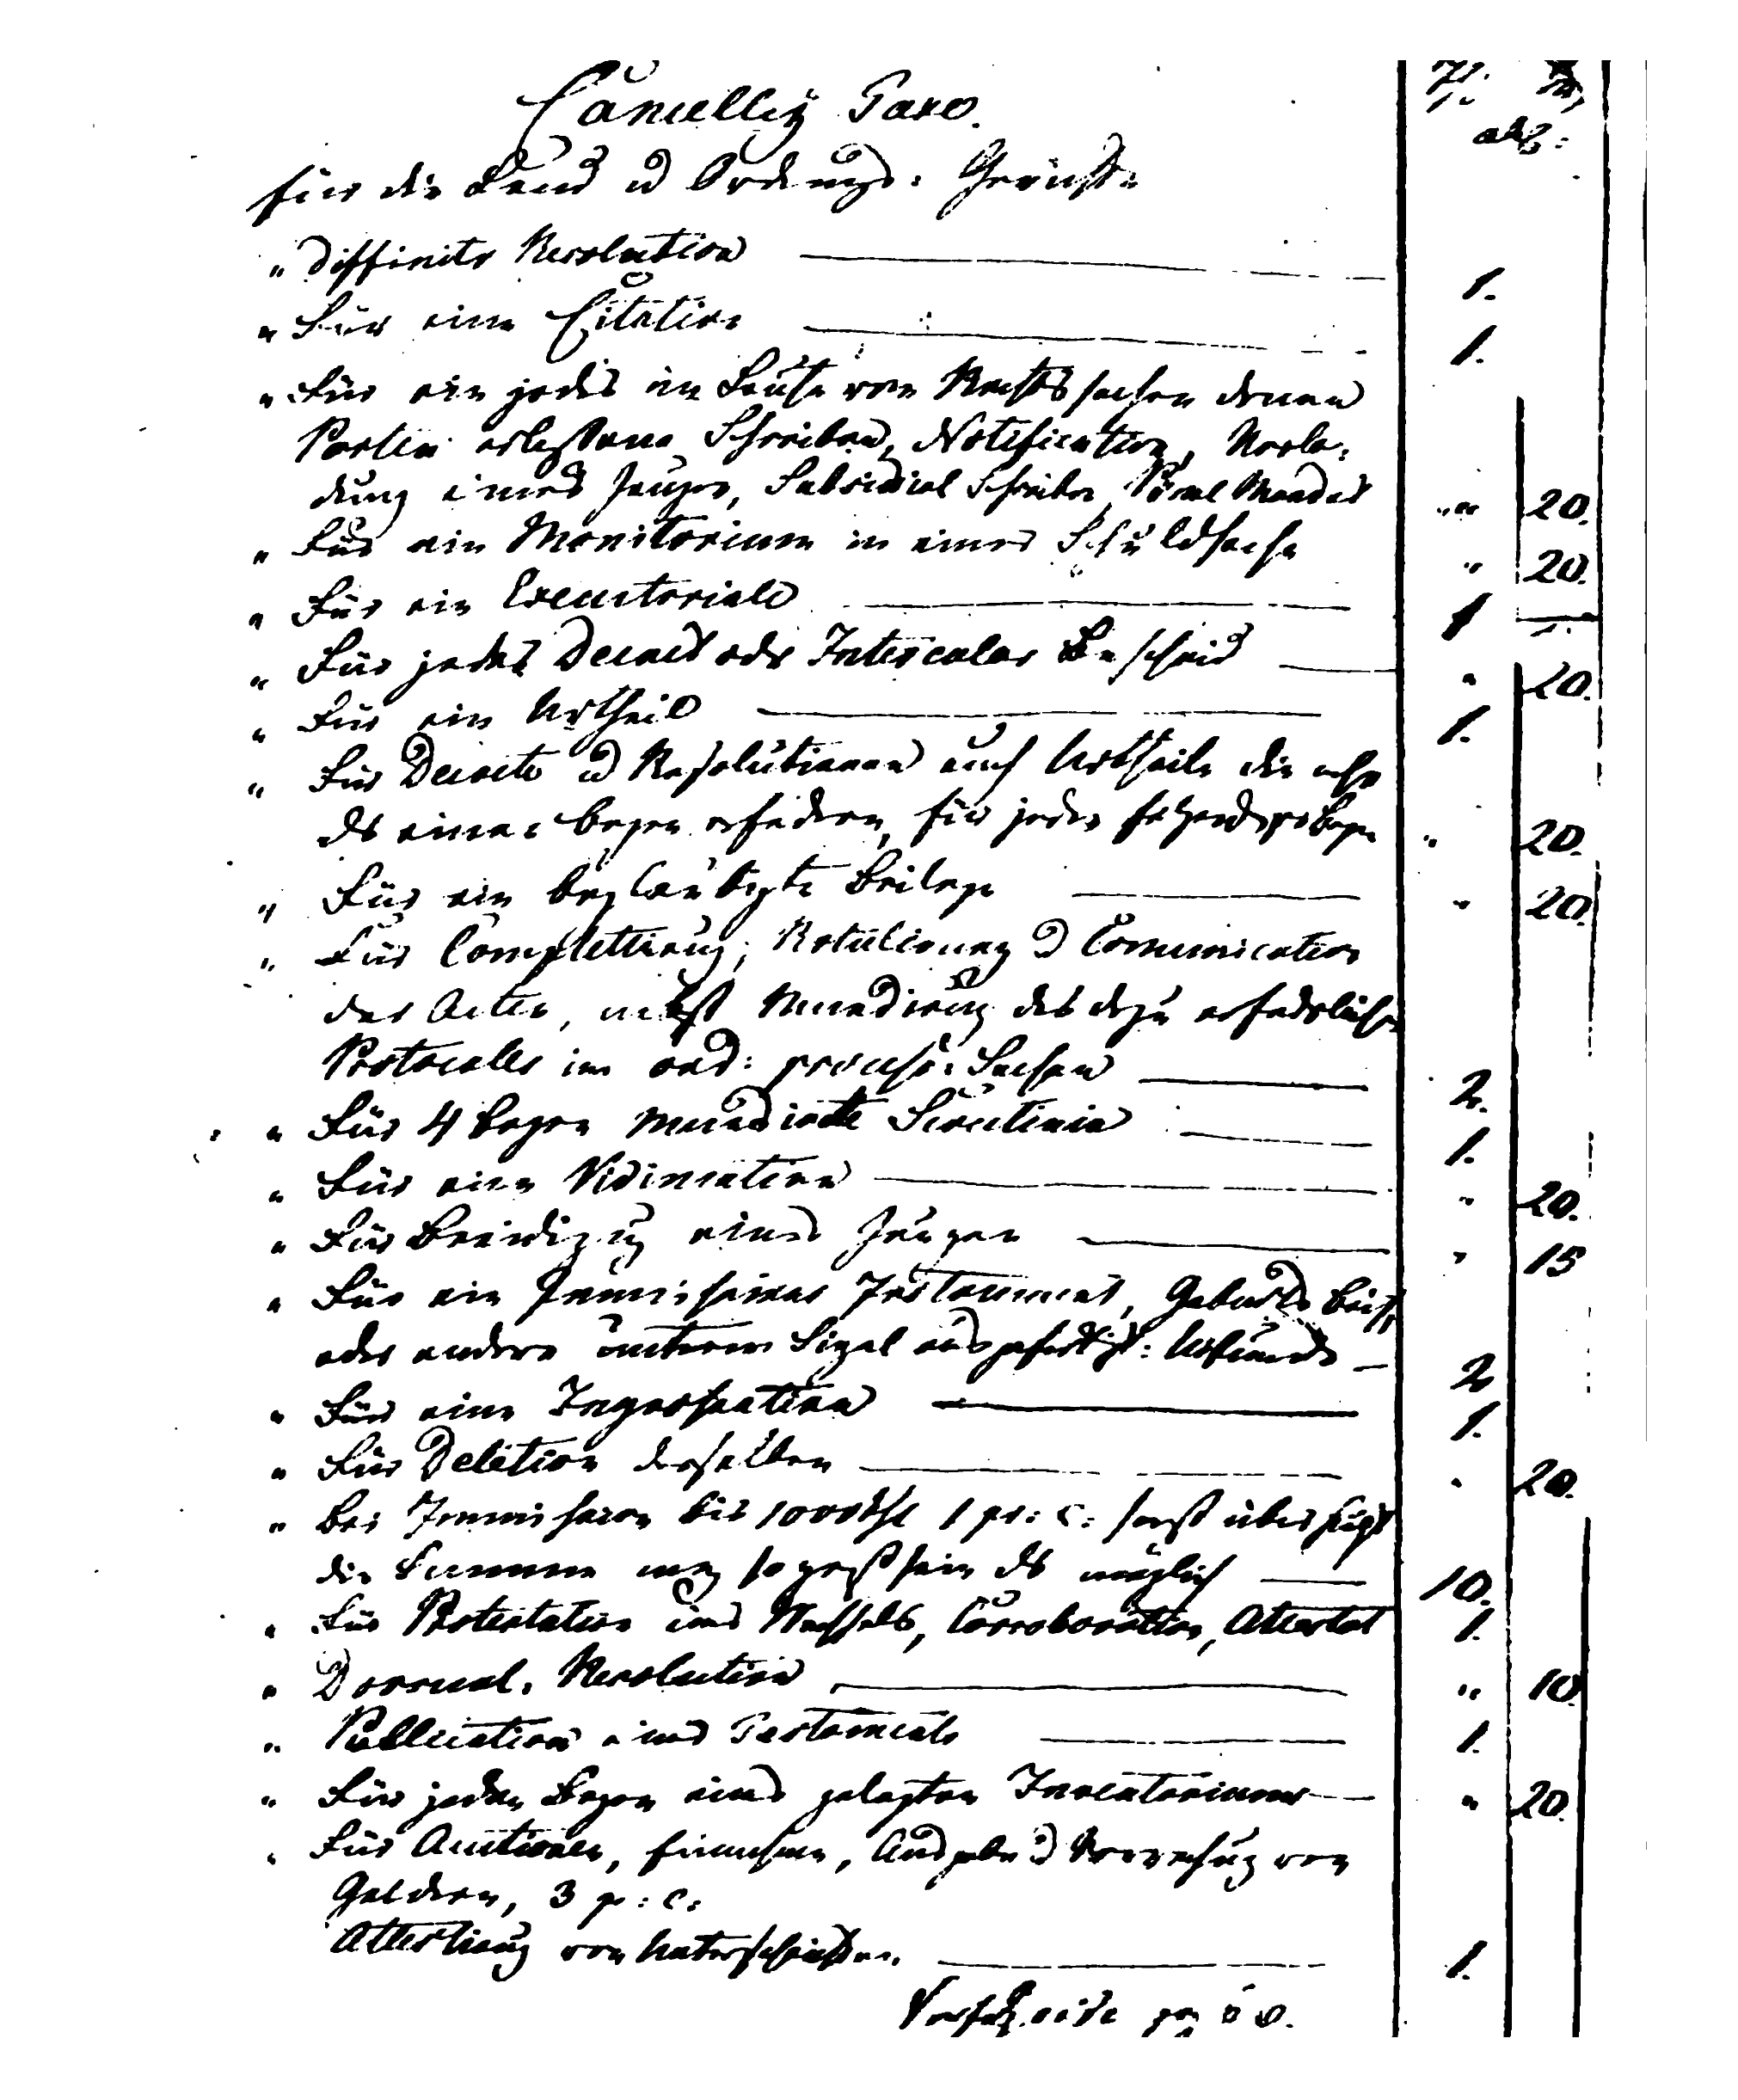 Cancelley Taxe.
Für die Land u Ordnungs: Gerichte
" Diffinitv Resolution — 1.
" Für eine Citation — 1.
" Für ein jedes im Laufe von Rechtssachen denen
Parten erlassene Schreiben, Notification, Vorla:
dung eines Zeugen, Subsidial Schreiben, Pönal Mandat " 20.
" Für ein Monitorium in einer Schuldsache " 20.
" Für ein Executoriale — 1
" Für jedes Decret oder Intercalar Bescheid — " 20.
" Für ein Urtheil — 1.
" Für Decrete u Resolutionen auch Urtheile die mehr
als einen Bogen erfodern, für jeden folgenden Bogen " 20.
" Für ein beglaubigte Beilage — " 20.
" Für Complettirung, Rotulirung u Comunication
der Acten, nebst Mundirung des dazu erfoderlichen
Protocolls im ord: process: Sachen — 2.
" Für 4 Bogen mundirte Scrutinia — 1.
" Für eine Vidimation — " 20.
" Für Beeidigung eines Zeugen — " 15
" Für ein Immissions Instrument, Geburts Brief,
oder andere unterm Sigel ausgefertigt: Urkunde — 2
" Für eine Ingrossation — 1.
" Für Deletion derselben — " 20.
" Bei Immission bis 1000 thl 1 pr: C: sonst überhaupt
die Summe mag so groß sein als möglich — 10.
" Für Protestation eines Wechsels, Corroboration, Attestat 1.
" Dorsual. Resolution — " 10.
" Publication eines Testaments — 1.
" Für jeden Bogen eines gelegten Inventariums — " 20.
" Für Auctionen, Einnahme, Ausgabe u Verwahrung von
Geldern, 3 p: C:
Attestirung von Unterschriften. — 1.